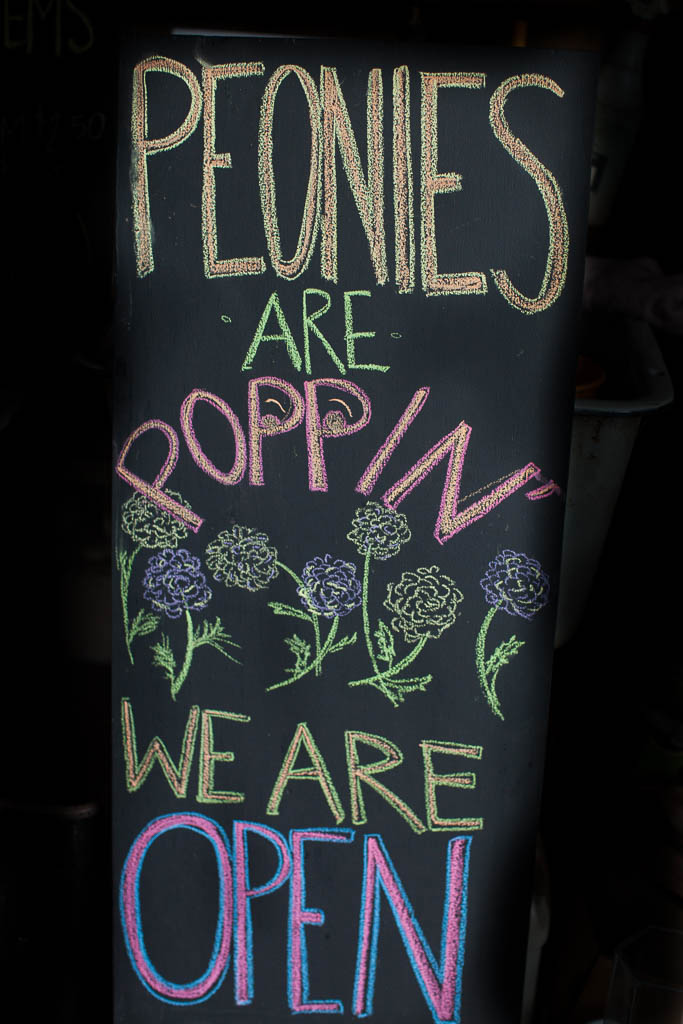 PEONIES
ARE
POPPIN'
WE ARE
OPEN